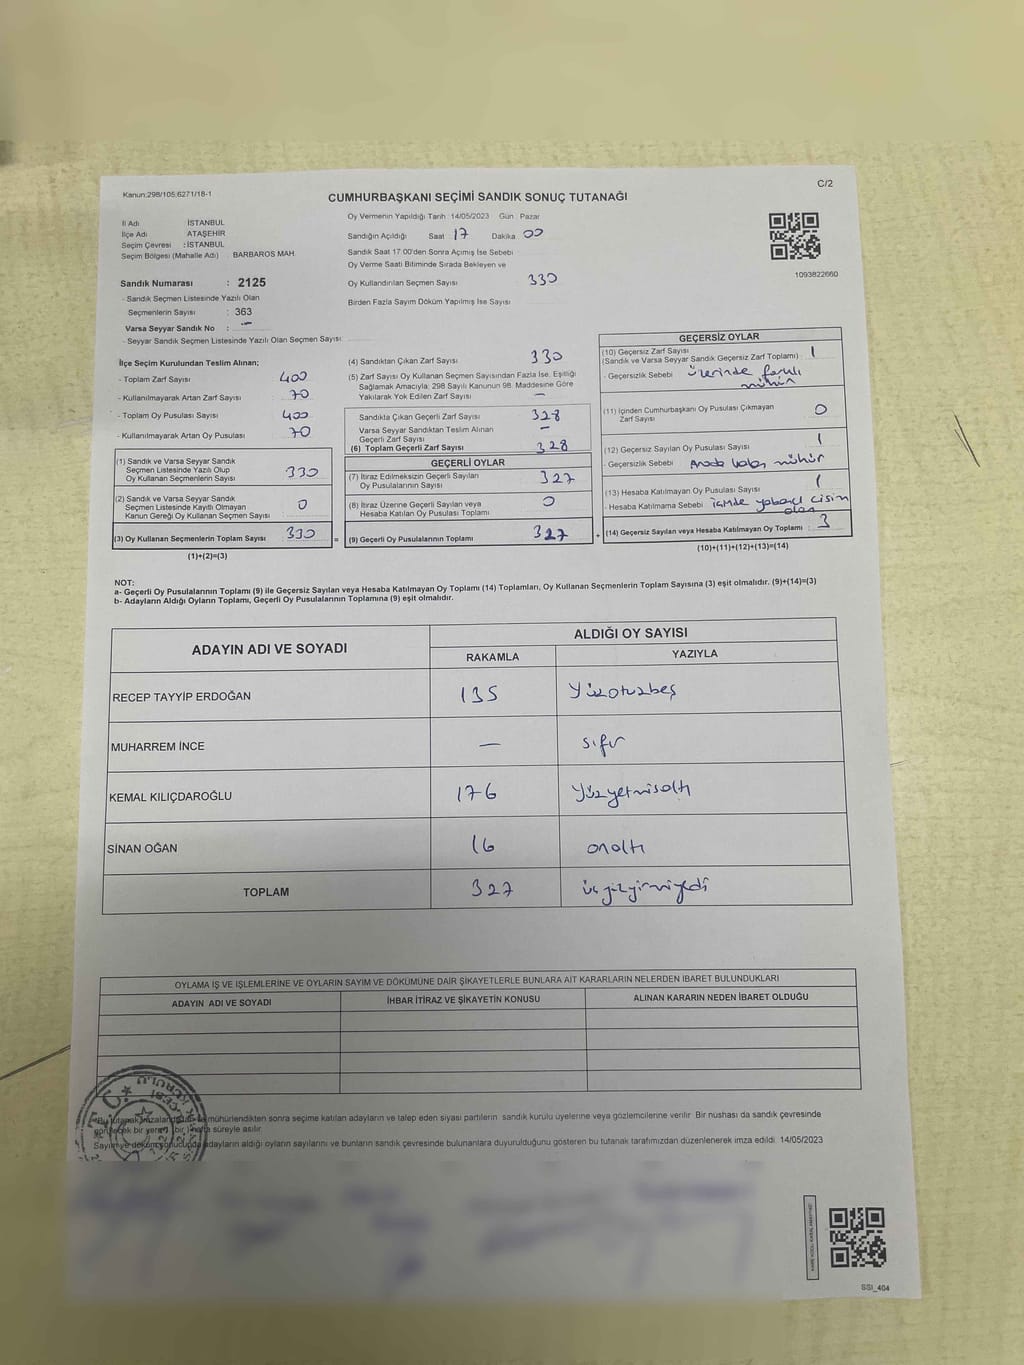 Kanun:298/105,6271/18-1
C/2
CUMHURBAŞKANI SEÇİMİ SANDIK SONUÇ TUTANAĞI
İl Adı İSTANBUL
İlçe Adı ATAŞEHİR
Seçim Çevresi : İSTANBUL
Seçim Bölgesi (Mahalle Adı) BARBAROS MAH.
Sandık Numarası : 2125
- Sandık Seçmen Listesinde Yazılı Olan
Seçmenlerin Sayısı : 363
Varsa Seyyar Sandık No : —
- Seyyar Sandık Seçmen Listesinde Yazılı Olan Seçmen Sayısı:
Oy Vermenin Yapıldığı Tarih :14/05/2023 Gün : Pazar
Sandığın Açıldığı Saat 17 Dakika 00
Sandık Saat 17:00'den Sonra Açımış İse Sebebi
Oy Verme Saati Bitiminde Sırada Bekleyen ve
Oy Kullandırılan Seçmen Sayısı 330
Birden Fazla Sayım Döküm Yapılmış İse Sayısı
1093822660
İlçe Seçim Kurulundan Teslim Alınan;
- Toplam Zarf Sayısı 400
- Kullanılmayarak Artan Zarf Sayısı 70
- Toplam Oy Pusulası Sayısı 400
- Kullanılmayarak Artan Oy Pusulası 70
(1) Sandık ve Varsa Seyyar Sandık
Seçmen Listesinde Yazılı Olup
Oy Kullanan Seçmenlerin Sayısı 330
(2) Sandık ve Varsa Seyyar Sandık
Seçmen Listesinde Kayıtlı Olmayan
Kanun Gereği Oy Kullanan Seçmen Sayısı 0
(3) Oy Kullanan Seçmenlerin Toplam Sayısı 330 =
(1)+(2)=(3)
(4) Sandıktan Çıkan Zarf Sayısı 330
(5) Zarf Sayısı Oy Kullanan Seçmen Sayısından Fazla İse, Eşitliği
Sağlamak Amacıyla; 298 Sayılı Kanunun 98. Maddesine Göre
Yakılarak Yok Edilen Zarf Sayısı —
Sandıkta Çıkan Geçerli Zarf Sayısı 328
Varsa Seyyar Sandıktan Teslim Alınan
Geçerli Zarf Sayısı —
(6) Toplam Geçerli Zarf Sayısı 328
GEÇERLİ OYLAR
(7) İtiraz Edilmeksizin Geçerli Sayılan
Oy Pusulalarının Sayısı 327
(8) İtiraz Üzerine Geçerli Sayılan veya
Hesaba Katılan Oy Pusulası Toplamı 0
(9) Geçerli Oy Pusulalarının Toplamı 327 +
GEÇERSİZ OYLAR
(10) Geçersiz Zarf Sayısı
(Sandık ve Varsa Seyyar Sandık Geçersiz Zarf Toplamı) 1
- Geçersizlik Sebebi üzerinde farklı
mühür
(11) İçinden Cumhurbaşkanı Oy Pusulası Çıkmayan
Zarf Sayısı 0
(12) Geçersiz Sayılan Oy Pusulası Sayısı 1
- Geçersizlik Sebebi Arada kalan mühür
(13) Hesaba Katılmayan Oy Pusulası Sayısı 1
- Hesaba Katılmama Sebebi içinde yabancı cisim
olan
(14) Geçersiz Sayılan veya Hesaba Katılmayan Oy Toplamı : 3
(10)+(11)+(12)+(13)=(14)
NOT:
a- Geçerli Oy Pusulalarının Toplamı (9) ile Geçersiz Sayılan veya Hesaba Katılmayan Oy Toplamı (14) Toplamları, Oy Kullanan Seçmenlerin Toplam Sayısına (3) eşit olmalıdır. (9)+(14)=(3)
b- Adayların Aldığı Oyların Toplamı, Geçerli Oy Pusulalarının Toplamına (9) eşit olmalıdır.
ADAYIN ADI VE SOYADI ALDIĞI OY SAYISI
RAKAMLA YAZIYLA
RECEP TAYYİP ERDOĞAN 135 Yüzotuzbeş
MUHARREM İNCE — sıfır
KEMAL KILIÇDAROĞLU 176 Yüzyetmisaltı
SİNAN OĞAN 16 onaltı
TOPLAM 327 üçyüzyirmiyedi
OYLAMA İŞ VE İŞLEMLERİNE VE OYLARIN SAYIM VE DÖKÜMÜNE DAİR ŞİKAYETLERLE BUNLARA AİT KARARLARIN NELERDEN İBARET BULUNDUKLARI
ADAYIN ADI VE SOYADI İHBAR İTİRAZ VE ŞİKAYETİN KONUSU ALINAN KARARIN NEDEN İBARET OLDUĞU
mühürlendikten sonra seçime katılan adayların ve talep eden siyasi partilerin sandık kurulu üyelerine veya gözlemcilerine verilir. Bir nüshası da sandık çevresinde
bir yere bir hafta süreyle asılır.
Sayım ve döküm sonucunda adayların aldığı oyların sayılarını ve bunların sandık çevresinde bulunanlara duyurulduğunu gösteren bu tutanak tarafımızdan düzenlenerek imza edildi. 14/05/2023
SSI_404